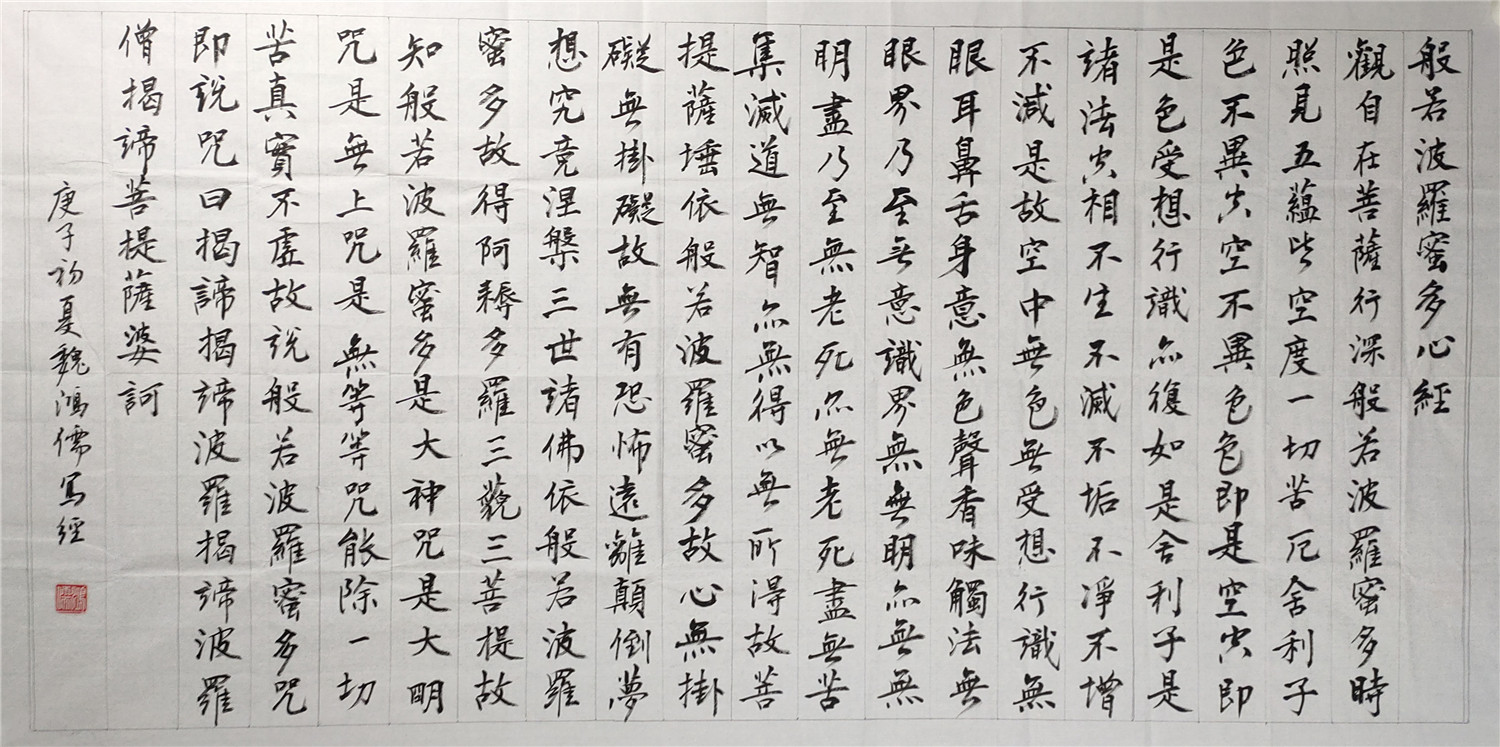 般若波羅蜜多心經
觀自在菩薩行深般若波羅蜜多時
照見五蘊皆空度一切苦厄舍利子
色不異空空不異色色即是空空即
是色受想行識亦復如是舍利子是
諸法空相不生不滅不垢不淨不增
不減是故空中無色無受想行識無
眼耳鼻舌身意無色聲香味觸法無
眼界乃至無意識界無無明亦無無
明盡乃至無老死亦無老死盡無苦
集滅道無智亦無得以無所得故菩
提薩埵依般若波羅蜜多故心無掛
礙無掛礙故無有恐怖遠離顛倒夢
想究竟涅槃三世諸佛依般若波羅
蜜多故得阿耨多羅三藐三菩提故
知般若波羅蜜多是大神咒是大明
咒是無上咒是無等等咒能除一切
苦真實不虛故說般若波羅蜜多咒
即說咒曰揭諦揭諦波羅揭諦波羅
僧揭諦菩提薩婆訶
庚子初夏魏鴻儒寫經